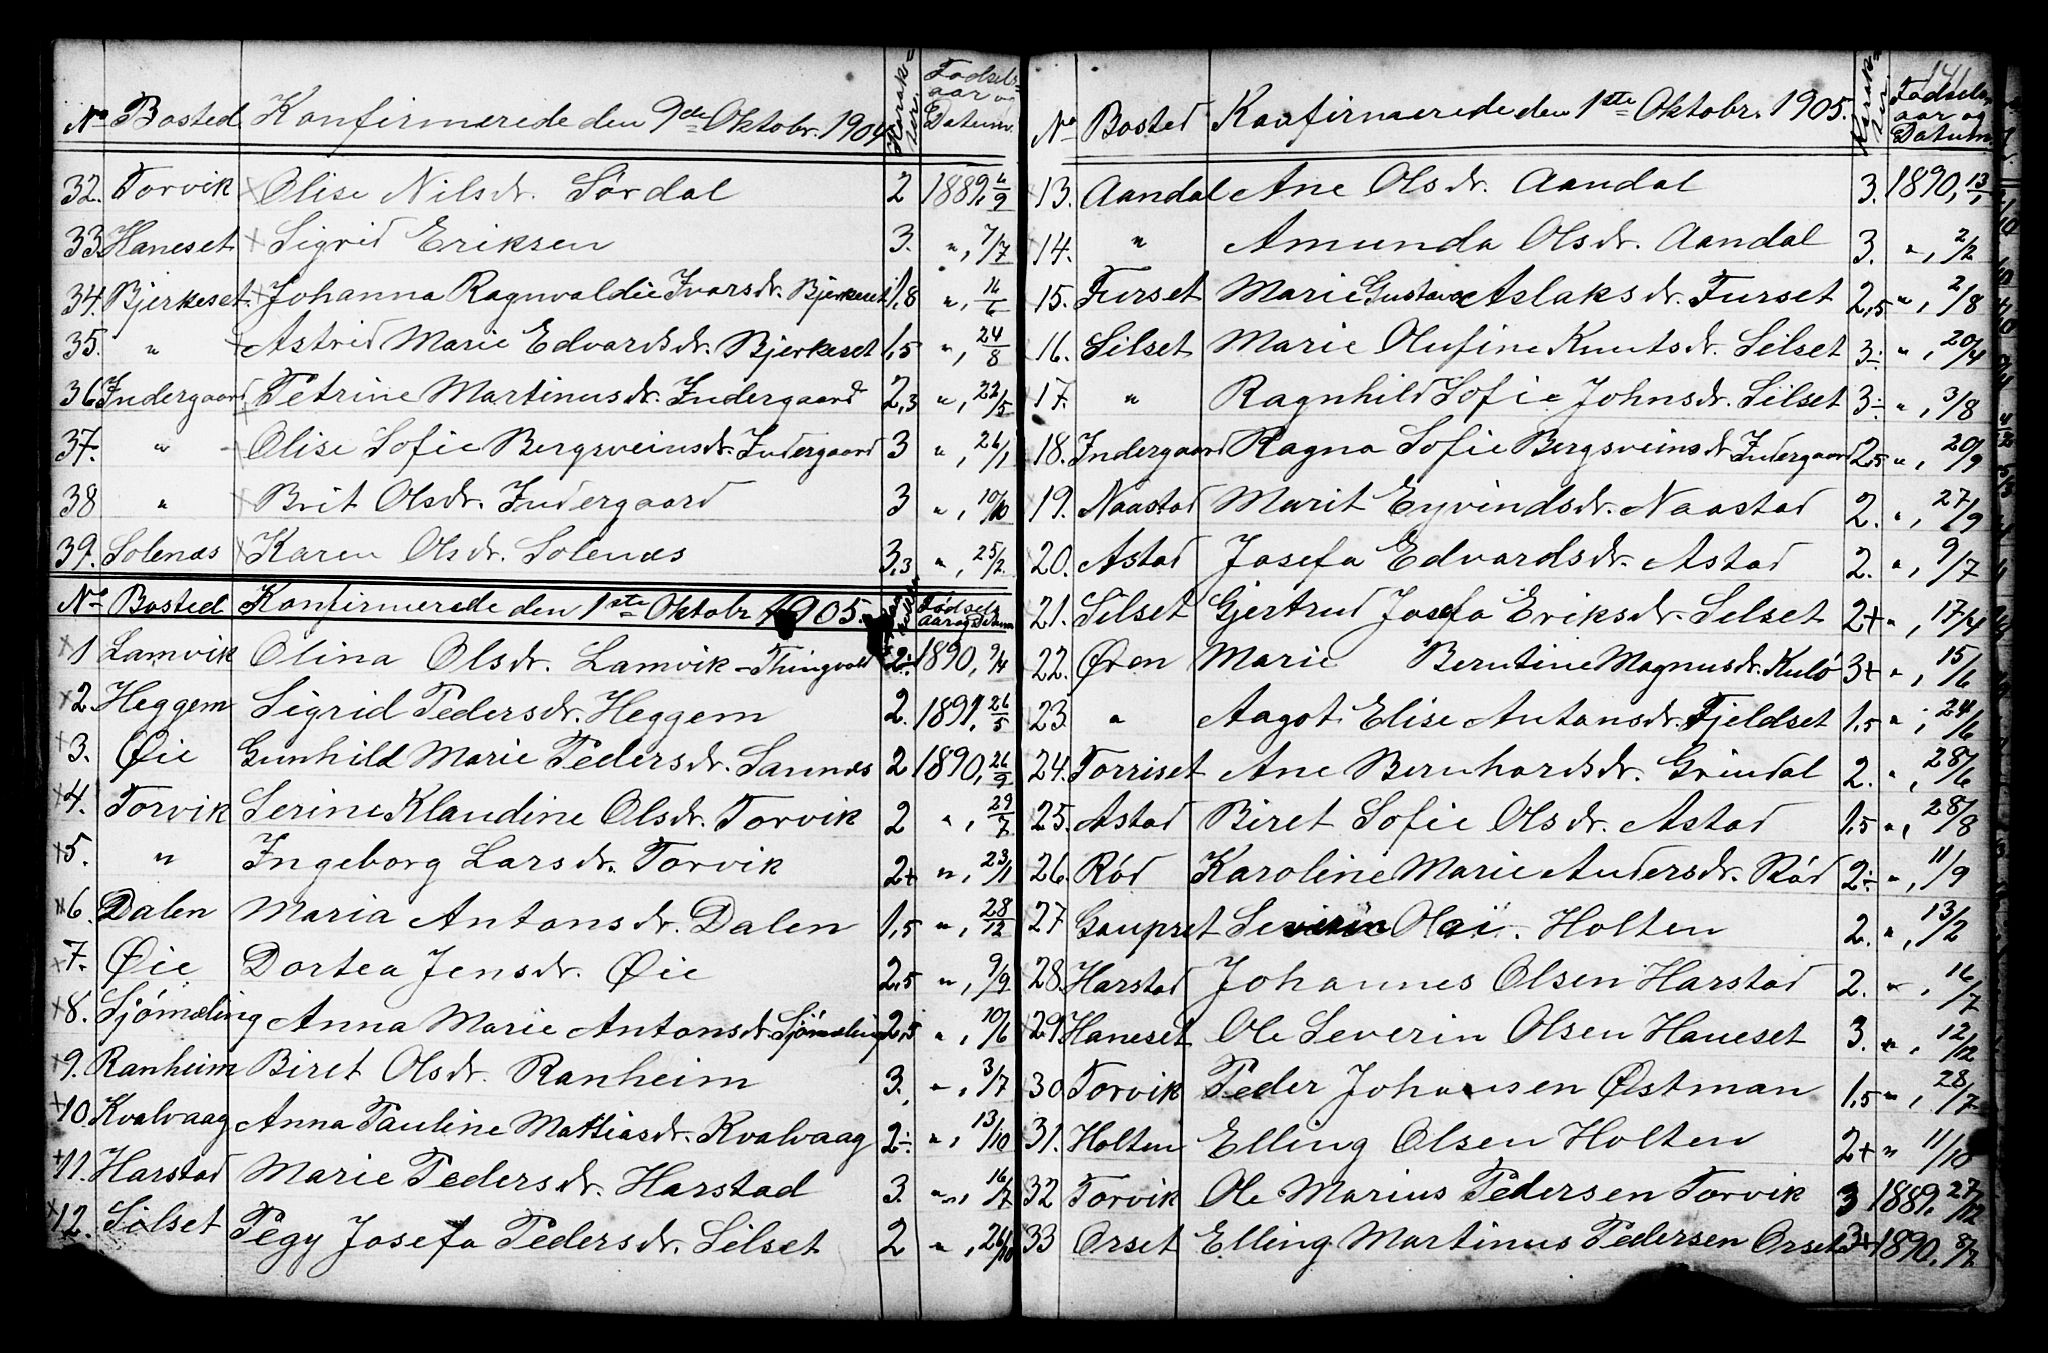 No Bosted Konfirmerede den 9de Oktobr. 1904 Karakterer. Fødsels aar og Datum.
32. Torvik Olise Nilsdr. Sørdal 2 1889, 6/9
33. Haneset Sigrid Eriksen 3. ", 7/7
34. Bjerkeset Johanna Ragnvaldie Ivarsdr. Bjerkeset 1,8 ", 16/6
35. " Astrid Marie Edvardsdr. Bjerkeset 1,5 ", 24/8
36 Indergaard Petrine Martinusdr. Indergaard 2,3 ", 22/5
37. " Olise Sofie Bergsveinsdr. Indergaard 3 ", 26/1
38 " Brit Olsdr. Indergaard 3 ", 10/10
39. Solenæs Karen Olsdr. Solenæs 3,3 ", 25/2
No Bosted Konfirmerede den 1ste Oktobr. 1905. Fødsels aar og Datum
1 Lamvik Olina Olsdr. Lamvik - Thingvold 2÷ 1890, 9/4
2. Heggem Sigrid Pedersdr. Heggem 2. 1891, 26/5
3. Øie Gunhild Marie Pedersdr. Sannæs 2 1890, 26/9
4. Torvik Serine Klaudine Olsdr. Torvik 2 ", 29/7
5. " Ingeborg Larsdr. Torvik 2+ ", 23/1
6. Dalen Maria Antonsdr. Dalen 1,5 ", 28/12
7. Øie Dortea Jensdr. Øie 2,5 ", 9/9
8. Sjømæling Anna Marie Antonsdr. Sjömæling 2,5 ", 10/6
9. Ranheim Biret Olsdr. Ranheim 3. ", 3/7
10. Kvalvaag Anna Pauline Mattiasdr. Kvalvaag 2÷ ", 13/10
11. Harstad Marie Pedersdr. Harstad 3. ", 16/7
12. Silset Pegy Josefa Pedersdr. Silset 2 ", 26/10
141
No Bosted Konfirmerede den 1ste Oktobr. 1905. Karakterer. Fødsels aar og Datum.
13. Aandal Ane Olsdr. Aandal 3. 1890, 13/1
14. " Amunda Olsdr. Aandal 3. ", 2/2
15. Furset Marie Gustava Aslaksdr. Furset 2,5 ", 2/8
16. Silset Marie Olufine Knutsdr. Silset 3÷ ", 20/4
17. " Ragnhild Sofie Johnsdr. Silset 3÷ ", 3/8
18. Indergaard Ragna Sofie Bergsveinsdr. Indergaard 2,5 ", 20/9
19. Naastad Marit Eyvindsdr. Naastad 2. ", 27/9
20. Astad Josefa Edvardsdr. Astad 2. ", 9/7
21. Silset Gjertrud Josefa Eriksdr. Silset 2+ ", 17/4
22. Øren Marie Berntine Magnusdr. Kulö 3+ ", 15/6
23. " Aagot Elise Antonsdr. Fjeldset 1,5 ", 24/6
24. Torriset Ane Bernhardsdr. Grindal 2. ", 28/6
25. Astad Biret Sofie Olsdr. Astad 1,5 ", 28/8
26. Rød Karoline Marie Andersdr. Rød 2÷ ", 11/9
27 Gaupset Severin Olai. Holten 2. ", 13/2
28. Harstad Johannes Olsen Harstad 2. ", 16/7
29. Haneset Ole Severin Olsen Haneset 3. ", 12/12
30. Torvik Peder Johansen Østman 1,5 ", 28/7
31. Holten Elling Olsen Holten 2+ " 11/10
32 Torvik Ole Marius Pedersen Torvik 3 1889, 27/12
33 Orset Elling Martinus Pedersen Orset 3+ 1890, 8/2